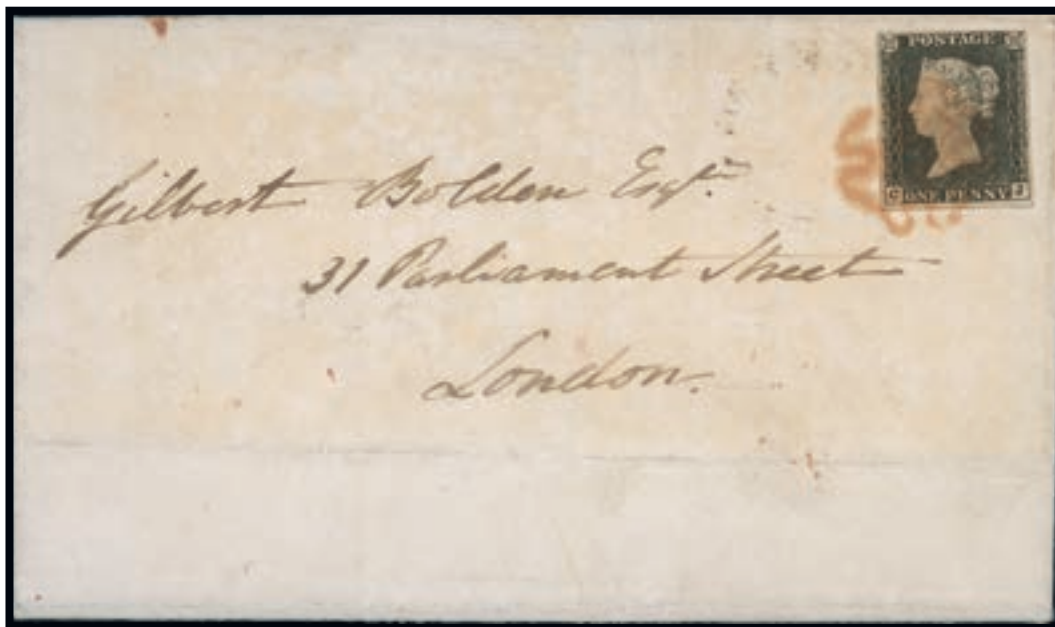 POSTAGE
ONE PENNY J
Gilbert Bolden Esqr.
31 Parliament Street
London.